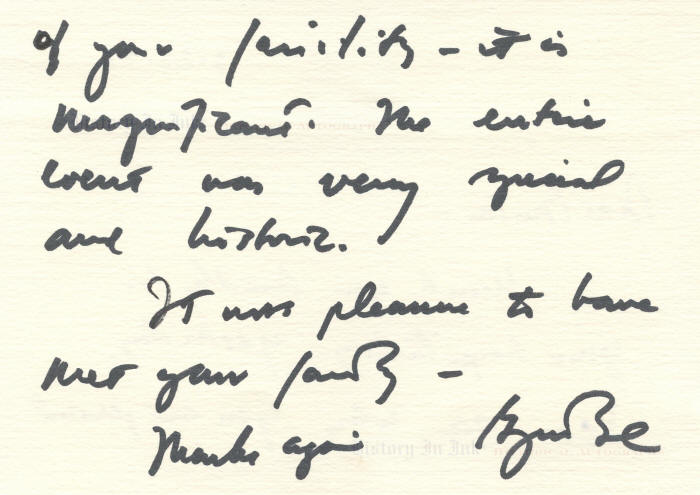 of your facility - it is
magnificant. The entire
event was very special
and historic.
It was pleasure to have
met your family -
Thanks again
History In Ink